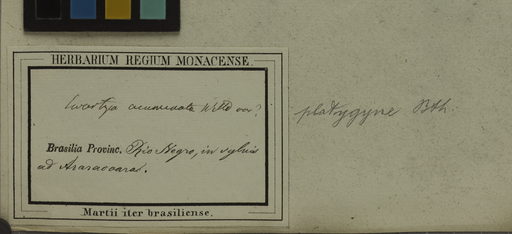 HERBARIUM REGIUM MONACENSE.
Swartzia acuminata Willd var?
platygyne Bth.
Brasilia Provinc. Rio Negro, in sylvis
ad Araracoara.
Martii iter brasiliense.